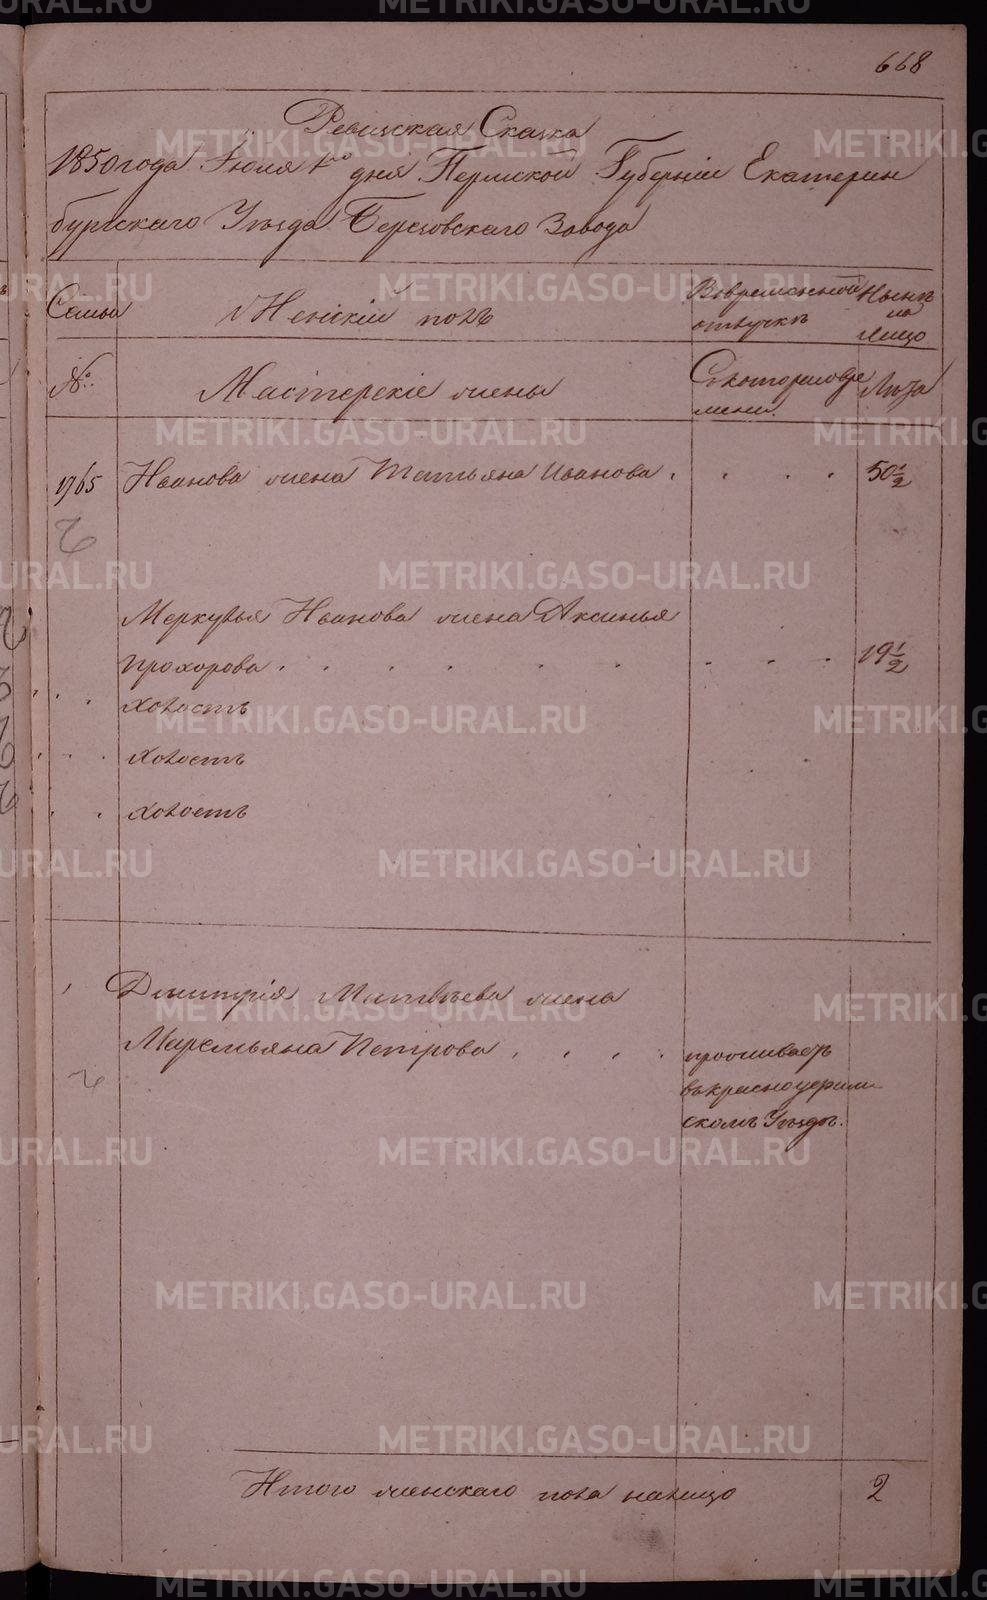 668
Ревизская Сказка
1850 года Июля 1го дня Пермской Губернiи Екатерин
бургскаго Уѣзда Березовскаго Завода
Семьи
Женскiй полъ
Вовременной
отлучкѣ
Нынѣ
на
Лицо
№.
Мастерскiе жены
Съкотораговре
мени.
Лѣта
1765 Иванова жена Татьяна Иванова . . . . 50 1/2
Меркурья Иванова жена Аксинья
Прохорова . . . . . . . . . 19 1/2
. . Холостъ
. . . Холостъ
. . Холостъ
Дмитрiя Матвѣева жена
Маремьяна Петрова . . . . проживаетъ
въкрасноуфим
скомъ Уѣздѣ.
Итого женскаго пола налицо 2
METRIKI.GASO-URAL.RU